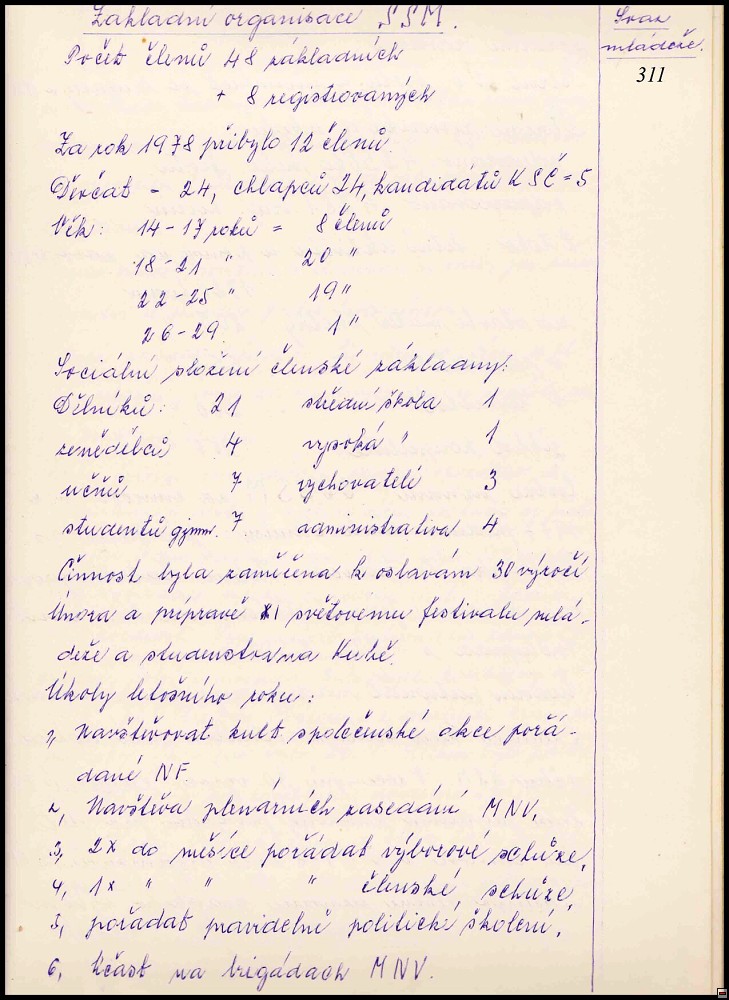 Základní organisace SSM.
Svaz
mládeže.
311
Počet členů 48 základních
+ 8 registrovaných
Za rok 1978 přibylo 12 členů.
Děvčat - 24, chlapců 24, kandidátů KSČ = 5
Věk: 14-17 roků = 8 členů
18-21 " 20 "
22-25 " 19 "
26-29 1 "
Sociální složení členské základny:
Dělníků: 21 střední škola 1
zemědělců 4 vysoká " 1
učňů 7 vychovatelé 3
studentů gymn. 7 administrativa 4
Činnost byla zaměřena k oslavám 30 výročí
Února a přípravě XI světovému festivalu mlá-
deže a studentstva na Kubě.
Úkoly letošního roku:
1, Navštěvovat kult společenské akce pořá-
dané NF.
2, Návštěva plenárních zasedání MNV,
3, 2x do měsíce pořádat výborové schůze,
4, 1x " " " členské schůze,
5, pořádat pravidelně politické školení,
6, Účast na brigádách MNV.